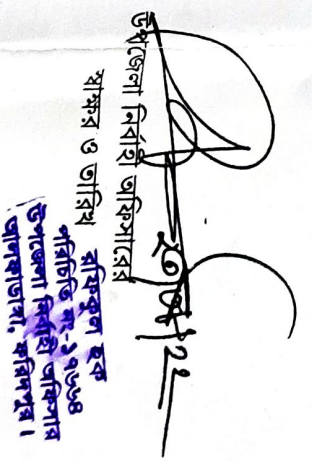 উপজেলা নির্বাহী অফিসারের
স্বাক্ষর ও তারিখ
রফিকুল হক
পরিচিতি নং-১৭৭৬৪
উপজেলা নির্বাহী অফিসার
আলফাডাঙ্গা, ফরিদপুর।